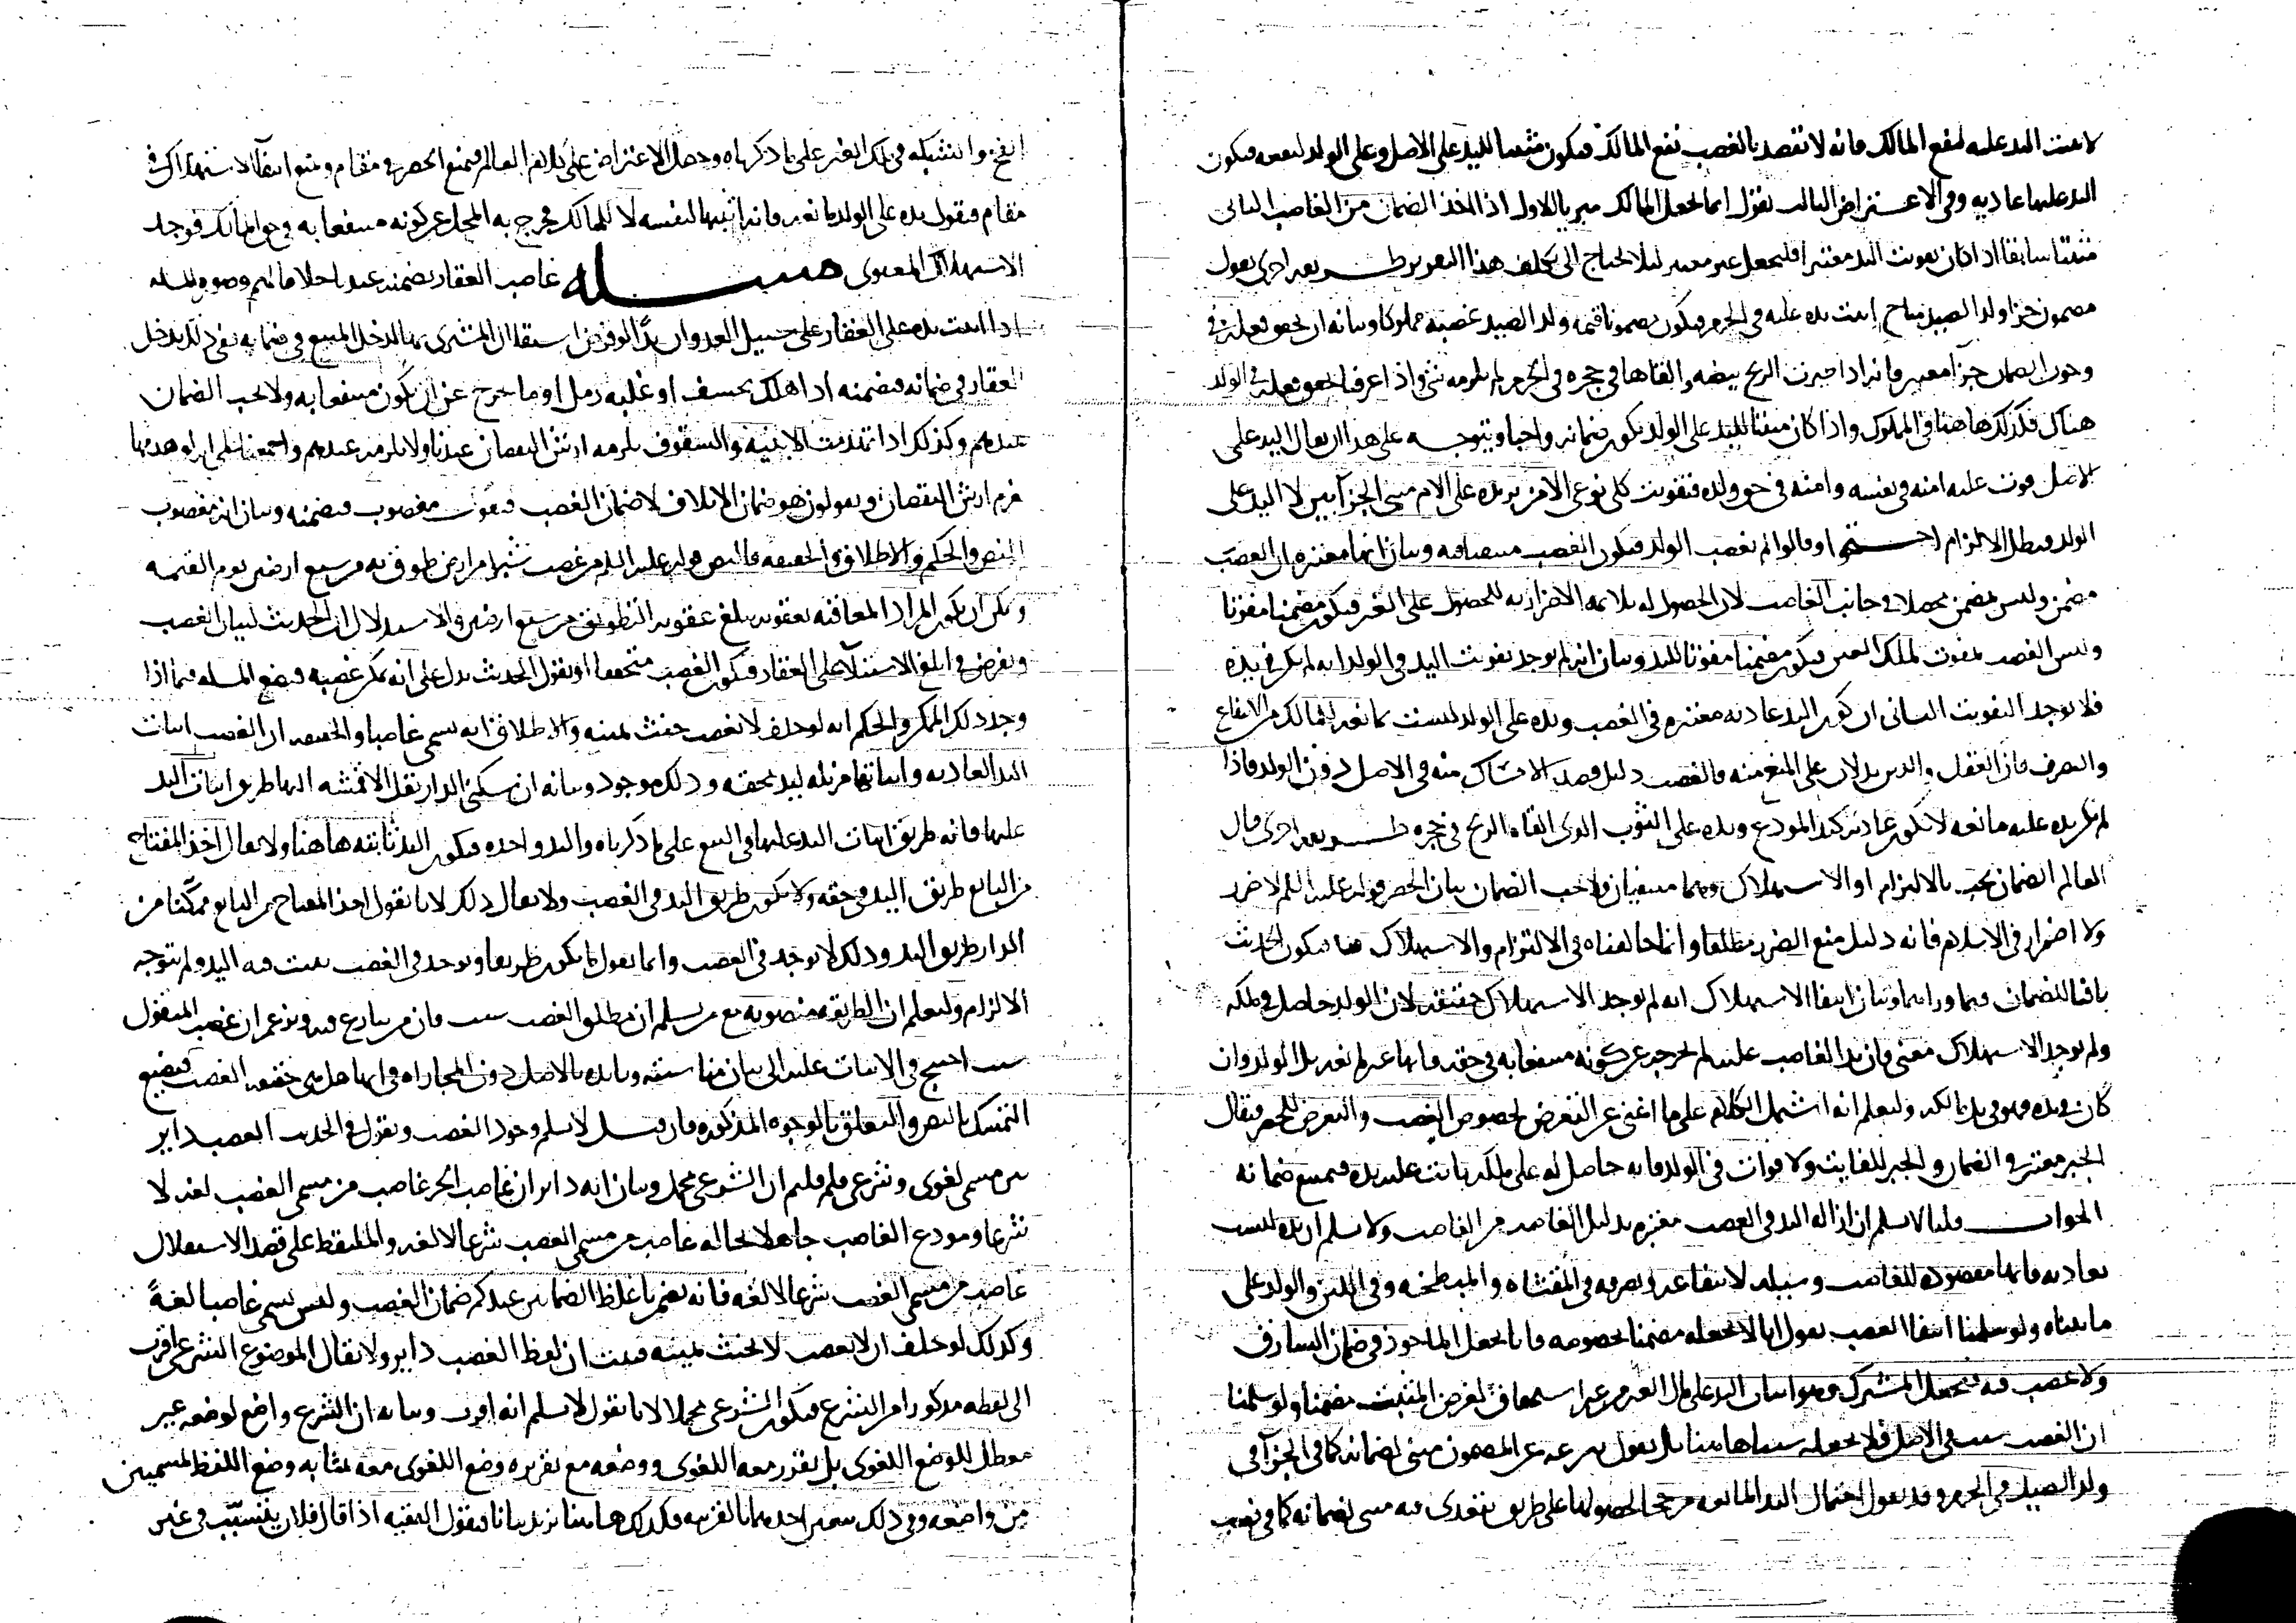 لاثبت اليد عليه لنفع المالك فانه لا تقصد بالغصب نفع المالك فيكون مثبتا لليد على الاصل وعلى الولد لنفعه فيكون
اليد عليها عاديه وفي الاعتراض الثالث نقول انما نجعل المالك مبريا للاول اذا اخذ الضمان من الغاصب الثاني
اذا كان تفويت اليد معتبرا فليجعل غير معتبر ليلا يحتاج الى تكلف هذا التقرير طريقه اخرى نقول
مضمون جزا ولد الصيد مباح اثبت يده عليه في الحرم فيكون مضمونا قيمه ولد الصيد غصبه مملوكا وبيانه ان نحقق فعله في
وجوب الضمان جزا فانه اذا الريح بيضه والقاها في حجره في الحرم لم يلزمه شي واذا عرفنا تحقق فعله في الولد
هناك فكذلك هاهنا في المملوك واذا كان مثبتا لليد على الولد يكون ضمانه واجبا ويتوجه على هذا ان يقال اليد على
الاصل فوت عليه امنه في نفسه وامنه في حق ولده فتفويت كلي نوعي الامن يده على الام مبنى الجزآيين لا اليد على
الولد فبطل الالزام احتجوا وقالوا لم يغصب الولد فيكون الغصب وبيان انها معتبره ان الغصب
مضمن وليس مضمن محصلا في جانب الغاصب لان الحصول له يلائمه الاضرار به للحصول على الغير فيكون مضمنا مفوتا
وليس الغصب بمفوت لملك العين فيكون مضمنا مفوتا لليد وبيان انه لم يوجد تفويت اليد في الولد انه لم يكن في يده
فلا يوجد التفويت الثاني ان كون اليد عاديه معتبره في الغصب ويده على الولد ليست مانعه للمالك من الانتفاع
والتصرف فان العقل والدين يدلان على المنع منه فالغصب دليل قصد الامساك منه في الاصل دون الولد فاذا
لم تكن يده عليه مانعه لا تكون عاديه كيد المودع ويده على الثوب الذي القاه الريح في حجره طريقه اخرى قال
العالم الضمان يجب بالالتزام او الاستهلاك وهما منتفيان فلا يجب الضمان بيان الحصر قوله عليه السلم لا ضرر
ولا اضرار في الاسلام فانه دليل منع الضرر مطلقا وانما خالفناه في الالتزام والاستهلاك فيكون الحديث
نافيا للضمان فيما وراهما وبيان انتفا الاستهلاك انه لم يوجد الاستهلاك حقيقه لان الولد حاصل في ملكه
ولم يوجد الاستهلاك معنى فان يد الغاصب عليه لم تخرجه عن كونه منتفعا به في حقه فانها غير مانعه بل الولد وان
كان في يده فهو في يد مالكه وليعلم انه اشتمل الكلام على ما اغنى عن التعرض لخصوص الغصب والتعرض للحصر فيقال
الجبر معتبر في الضمان والجبر للفايت ولا فوات في الولد فانه حاصل له على ملكه باثبت عليه يده فيمتنع ضمانه
الجواب قلنا لا نسلم ان ازاله اليد في الغصب معتبره بدليل الغاصب من الغاصب ولا نسلم ان يده ليست
بعاديه فانها مقصوده للغاصب وسبيله لانتفاعه وتصرفه في المقثاه والمبطخه وفي اللبن والولد على
ما بيناه ولو سلمنا انتفا الغصب نقول انا لا نجعله مضمنا لخصوصه فانا نجعل الماخوذ في ضمان السارق
ولا غصب فيه فنجعل المشترك وهو اثبات اليد على مال الغير من غير استحقاق لغرض المثبت مضمنا ولو سلمنا
ان الغصب سبب في الاصل فلا نجعله سببا هاهنا بل نقول تفرعه عن المضمون مبنى لضمانه كما في الجزآ في
ولد الصيد في الحرم وقد نقول احتمال اليد المانعه مرجح الحصول لها على طريق تتعدى فيه مبنى لضمانه كما في نصب
الفخ والشبكه في ملك الغير على ما ذكرناه وحصل الاعتراض على كلام العالم فنمنع الحصر في مقام ونمنع انتفآ الاستهلاك في
مقام فنقول يده على الولد مانعه فانه اثبتها لنفسه لا للمالك فخرج به المحل عن كونه منتفعا به في حق المالك فوجد
الاستهلاك المعنوي مسله غاصب العقار يضمنه عندنا خلافا لهم وصوره المسله
اذا اثبت يده على العقار على سبيل العدوان بدا لو فرض استقلال المشتري بها لدخل المبيع في ضمانه ففي ذلك يدخل
العقار في ضمانه فيضمنه اذا هلك بخسف او غلبه رمل او ما خرج عن ان يكون منتفعا به ولا يجب الضمان
عندهم وكذلك اذا تهدمت الابنيه والسقوف يلزمه ارش النقصان عندنا ولا يلزمه عندهم واجمعنا على انه لو هدمها
غرم ارش النقصان ويقولون هو ضمان الاتلاف لا ضمان الغصب فنقول مغصوب فيضمنه وبيان انه مغصوب
النص والحكم والاطلاق والحقيقه فالنص قوله عليه السلم من غصب شبرا من ارض طوق به من سبع ارضين يوم القيمه
ويمكن ان يكون المراد المعاقبه بعقوبه تبلغ عقوبه التطويق من سبع ارضين والاستدلال ان الحديث لبيان الغصب
ونفرض في ابلغ الاستيلا على العقار فيكون الغصب متحققا او نقول الحديث يدل على انه يمكن غصبه فنضع المسله فيما اذا
وجد ذلك الممكن والحكم انه لو حلف لا يغصب حنث يمينه والاطلاق انه يسمى غاصبا والحقيقه ان الغصب اثبات
اليد العاديه واثباتها مزيله ليد محقه وذلك موجود وبيانه ان سكنى الدار ونقل الاقمشه اليها طريق اثبات اليد
عليها فانه طريق اثبات اليد عليها في البيع على ما ذكرناه واليد واحده فيكون اليد ثابته هاهنا ولا يقال اخذ المفتاح
من البايع طريق اليد في حقه ولا يكون طريق اليد في الغصب ولا يقال ذلك لانا نقول اخذ المفتاح من البايع ممكنا من
الدار طريق اليد وذلك لا يوجد في الغصب وانما نقول ما يكون طريقا ويوجد في الغصب يثبت فيه اليد ولم يتوجه
الالزام وليعلم ان الطريقه منصوبه مع من يسلم ان مطلق الغصب سبب فان من ينازع فيه ويزعم ان غصب المنقول
سبب احتيج في الاثبات عليه الى بيان مناسبته وتاييده بالاصل دون المجاراه في انها هل هي حقيقه الغصب فيضيع
التمسك بالنص والتعلق بالوجوه المذكوره فان قيل لا نسلم وجود الغصب ونقول في الحديث الغصب داير
بين مسمى لغوى وشرعي فلم قلتم ان الشرعي محمل وبيان انه داير ان غاصب الحر غاصب من مسمى الغصب لغه لا
شرعا ومودع الغاصب جاهلا بحاله غاصب من مسمى الغصب شرعا لا لغه والملتقط على قصد الاستقلال
غاصب من مسمى الغصب شرعا لا لغه فانه يغرم باغلظ الضمانين عندكم ضمان الغصب وليس يسمى غاصبا لغةً
وكذلك لو حلف ان لا يغصب لا يحنث بمينه فيثبت ان لفظ الغصب داير ولا يقال الموضوع الشرعي اقرب
الى لفظه مذكورا من الشرع فيكون الشرعي محملا لانا نقول لا نسلم انه اقرب وبيانه ان الشرع واضع لوضعه غير
معطل للوضع اللغوي بل يتقرر معه اللغوي ووضعه مع تقريره وضع اللغوي معه بمثابه وضع اللفظ لمسميين
من واضعه وفي ذلك احدهما بالقرينه فكذلك هاهنا نزيد بيانا فنقول الفقيه اذا قال فلان يتسبب في غير